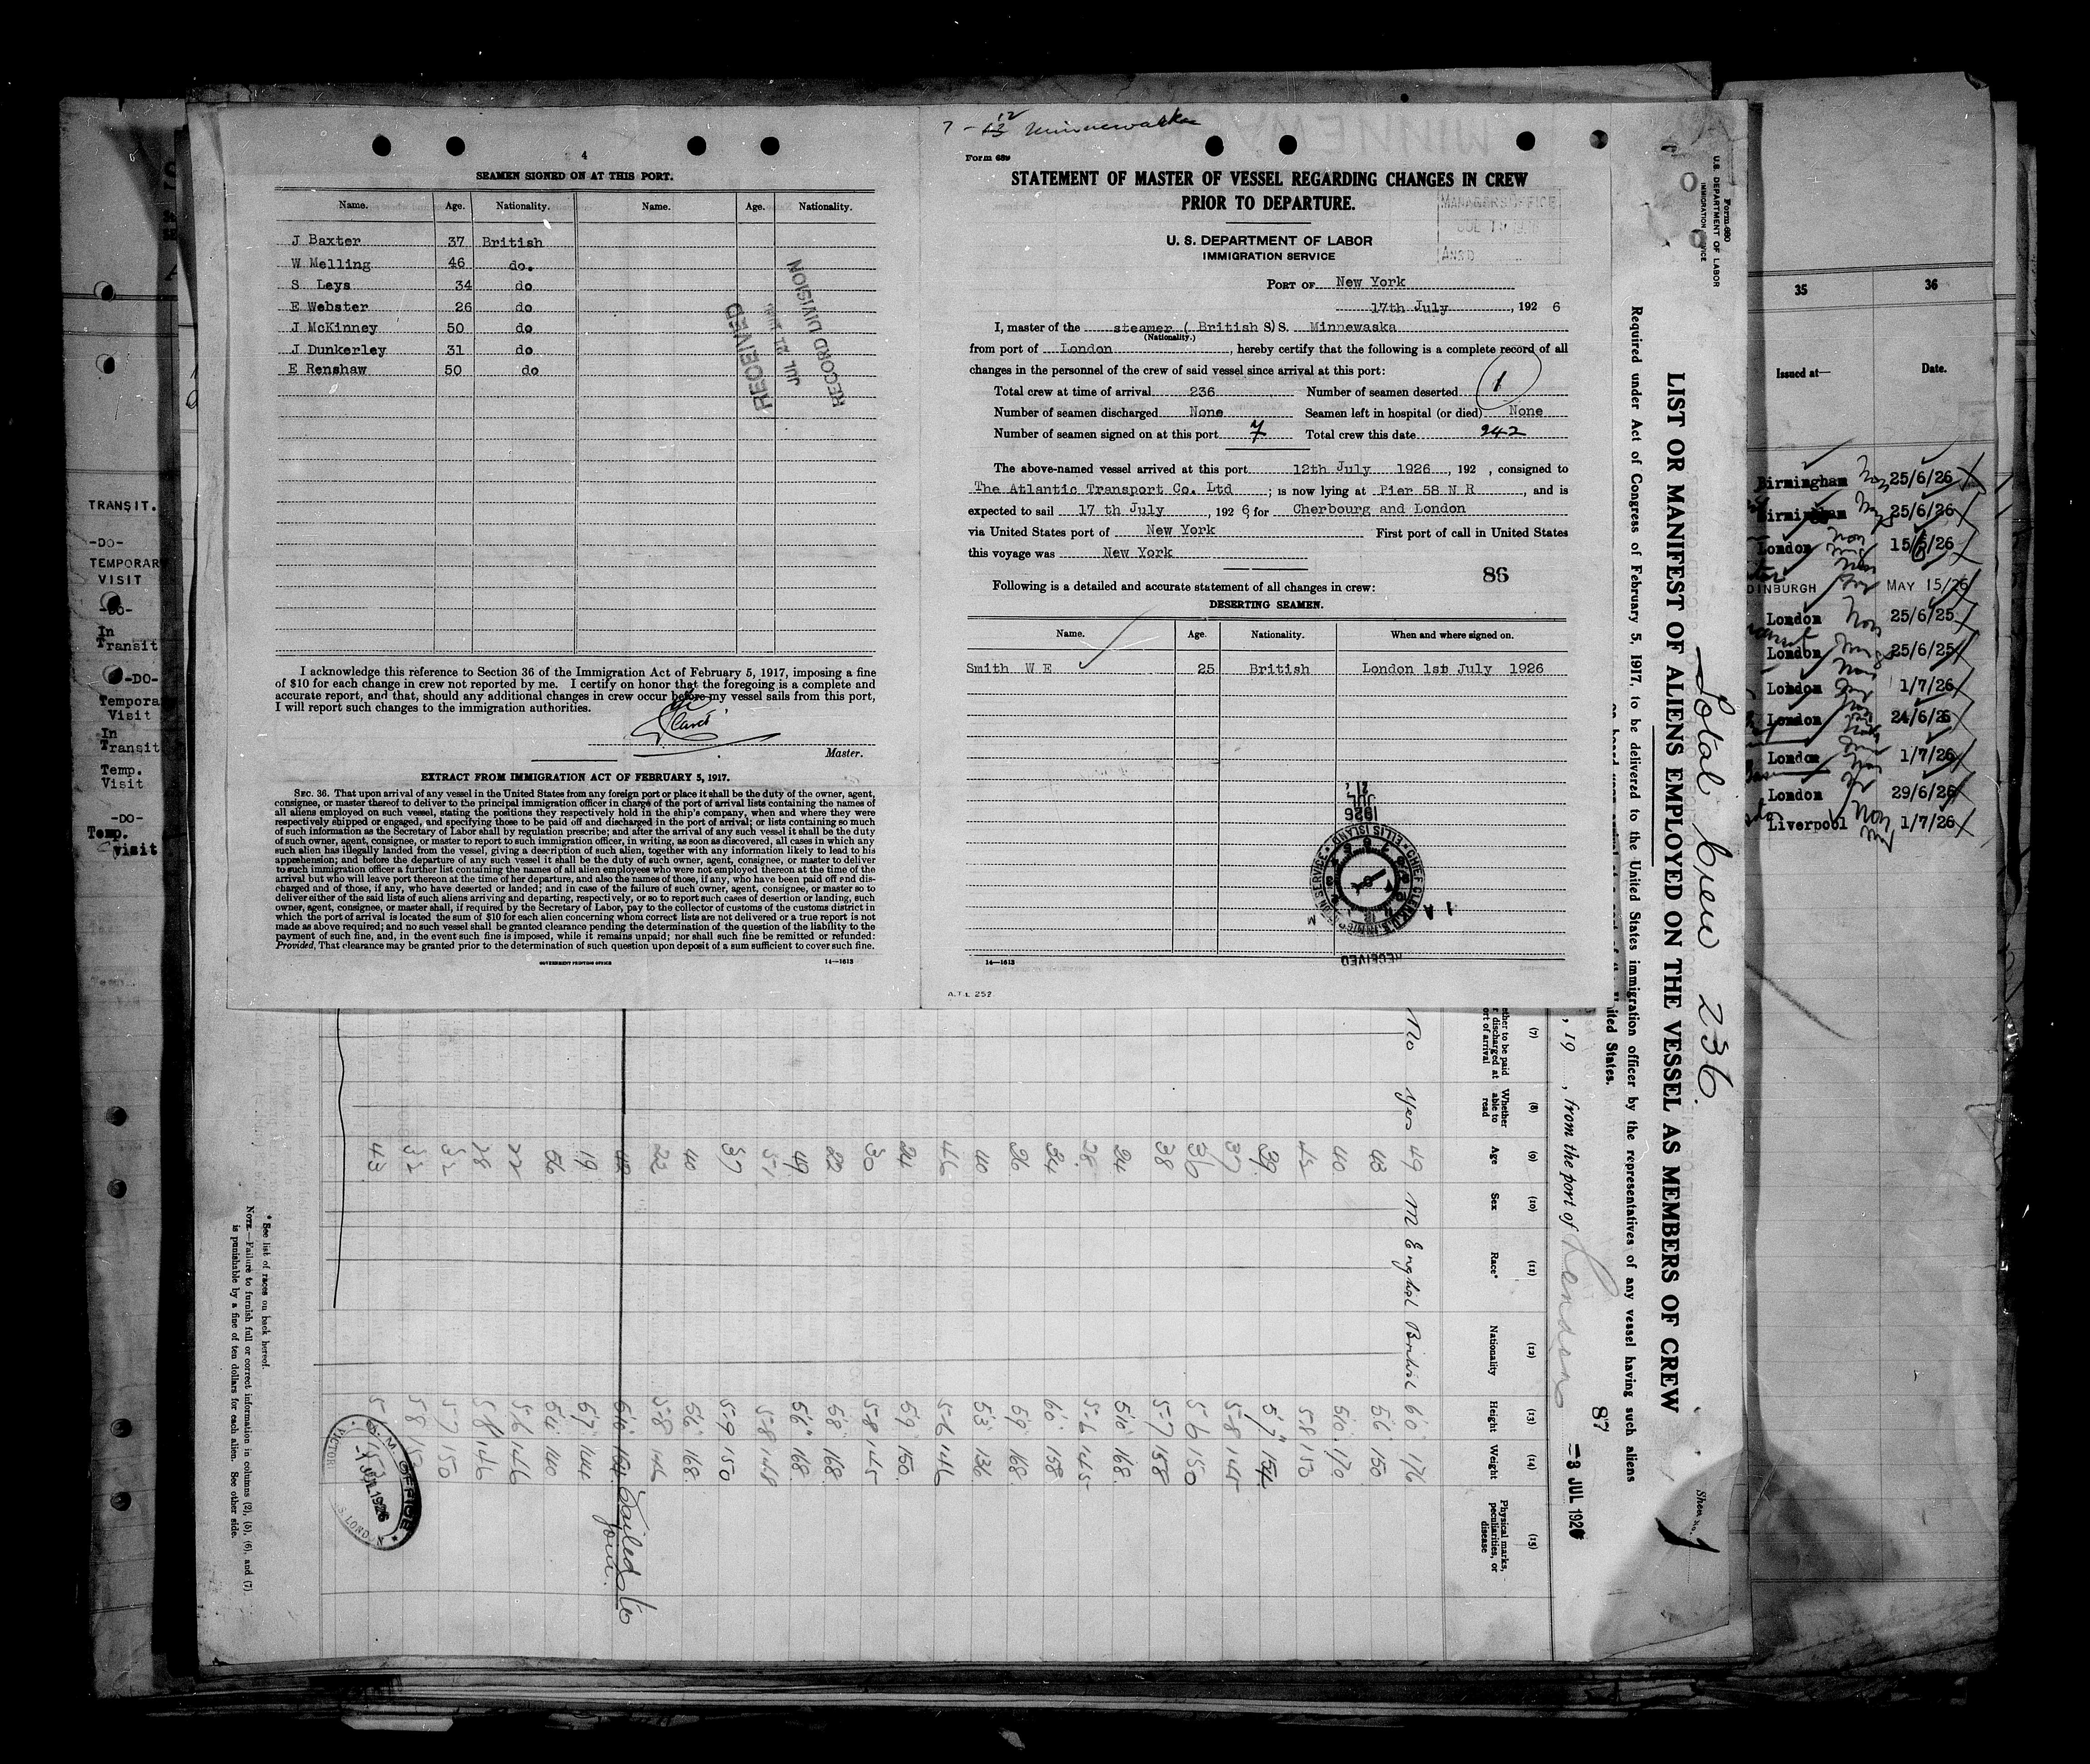 4
SEAMEN SIGNED ON AT THIS PORT.
Name. Age. Nationality. Name. Age. Nationality.
J Baxter 37 British
W Melling 46 do.
S Leys 34 do
E Webster 26 do
J McKinney 50 do
J Dunkerley 31 do
E Renshaw 50 do
RECEIVED
JUL 21 1926
RECORD DIVISION
I acknowledge this reference to Section 36 of the Immigration Act of February 5, 1917, imposing a fine
of $10 for each change in crew not reported by me. I certify on honor that the foregoing is a complete and
accurate report, and that, should any additional changes in crew occur before my vessel sails from this port,
I will report such changes to the immigration authorities.
Master.
EXTRACT FROM IMMIGRATION ACT OF FEBRUARY 5, 1917.
SEC. 36. That upon arrival of any vessel in the United States from any foreign port or place it shall be the duty of the owner, agent,
consignee, or master thereof to deliver to the principal immigration officer in charge of the port of arrival lists containing the names of
all aliens employed on such vessel, stating the positions they respectively hold in the ship's company, when and where they were
respectively shipped or engaged, and specifying those to be paid off and discharged in the port of arrival; or lists containing so much
of such information as the Secretary of Labor shall by regulation prescribe; and after the arrival of any such vessel it shall be the duty
of such owner, agent, consignee, or master to report to such immigration officer, in writing, as soon as discovered, all cases in which any
such alien has illegally landed from the vessel, giving a description of such alien, together with any information likely to lead to his
apprehension; and before the departure of any such vessel it shall be the duty of such owner, agent, consignee, or master to deliver
to such immigration officer a further list containing the names of all alien employees who were not employed thereon at the time of the
arrival but who will leave port thereon at the time of her departure, and also the names of those, if any, who have been paid off and dis-
charged and of those, if any, who have deserted or landed; and in case of the failure of such owner, agent, consignee, or master so to
deliver either of the said lists of such aliens arriving and departing, respectively, or so to report such cases of desertion or landing, such
owner, agent, consignee, or master shall, if required by the Secretary of Labor, pay to the collector of customs of the customs district in
which the port of arrival is located the sum of $10 for each alien concerning whom correct lists are not delivered or a true report is not
made as above required; and no such vessel shall be granted clearance pending the determination of the question of the liability to the
payment of such fine, and, in the event such fine is imposed, while it remains unpaid; nor shall such fine be remitted or refunded:
Provided, That clearance may be granted prior to the determination of such question upon deposit of a sum sufficient to cover such fine.
GOVERNMENT PRINTING OFFICE 14—1613
7 - 12 Minnewaska
Form 689
STATEMENT OF MASTER OF VESSEL REGARDING CHANGES IN CREW
PRIOR TO DEPARTURE.
MANAGERS OFFICE
U. S. DEPARTMENT OF LABOR
IMMIGRATION SERVICE
PORT OF New York
17th July, 192 6
I, master of the steamer ( British S) S. Minnewaska
(Nationality.)
from port of London, hereby certify that the following is a complete record of all
changes in the personnel of the crew of said vessel since arrival at this port:
Total crew at time of arrival 236 Number of seamen deserted 1
Number of seamen discharged None Seamen left in hospital (or died) None
Number of seamen signed on at this port 7 Total crew this date 242
The above-named vessel arrived at this port 12th July 1926, 192 , consigned to
The Atlantic Transport Co. Ltd ; is now lying at Pier 58 N R, and is
expected to sail 17 th July, 192 6, for Cherbourg and London
via United States port of New York First port of call in United States
this voyage was New York
86
Following is a detailed and accurate statement of all changes in crew:
DESERTING SEAMEN.
Name. Age. Nationality. When and where signed on.
Smith W E 25 British London 1st July 1926
JUL 21
1926
RECEIVED
14—1613
A.T.L. 252
Form 680
U. S. DEPARTMENT OF LABOR
IMMIGRATION SERVICE
Total Crew 236.
LIST OR MANIFEST OF ALIENS EMPLOYED ON THE VESSEL AS MEMBERS OF CREW
Required under Act of Congress of February 5, 1917, to be delivered to the United States immigration officer by the representatives of any vessel having such aliens
Sheet No. 1
87
, 19 , from the port of London
-3 JUL 1926
(7) (8) (9) (10) (11) (12) (13) (14) (15)
Whether able to read
Age
Sex
Race*
Nationality
Height
Weight
Physical marks, peculiarities, or disease
No Yes 49 M English British 6'0 176
43 5'6 150
40 5'10 170
45 5-8 150
39 5'7 154
37 5-8 145
36 5-6 150
38 5-7 158
24 5'10 168
28 5-6 145
34 6'0 158
26 5'9 168
40 5'3 136
46 5-6 146
24 5'9 150
30 5-8 145
22 5'8 168
49 5'6 168
51 5-8 148
37 5-9 150
40 5'6 168
23 5-8 146
42 5'10 164 Failed to join.
19 5'7 144
56 5'4 140
22 5-6 146
28 5-8 146
32 5-7 150
* See list of races on back hereof.
NOTE.—Failure to furnish full or correct information in columns (2), (5), (6), and (7)
is punishable by a fine of ten dollars for each alien. See other side.
TRANSIT.
-DO-
TEMPORAR
VISIT
-DO-
In
Transit
-DO-
Tempora
Visit
In
Transit
Temp.
Visit
-DO-
Temp.
visit
35 36
Issued at— Date.
Birmingham 25/6/26
Birmingham 25/6/26
London 15/6/26
DINBURGH MAY 15/26
London 25/6/25
London 25/6/25
London 1/7/26
London 24/6/26
London 1/7/26
London 29/6/26
Liverpool 1/7/26